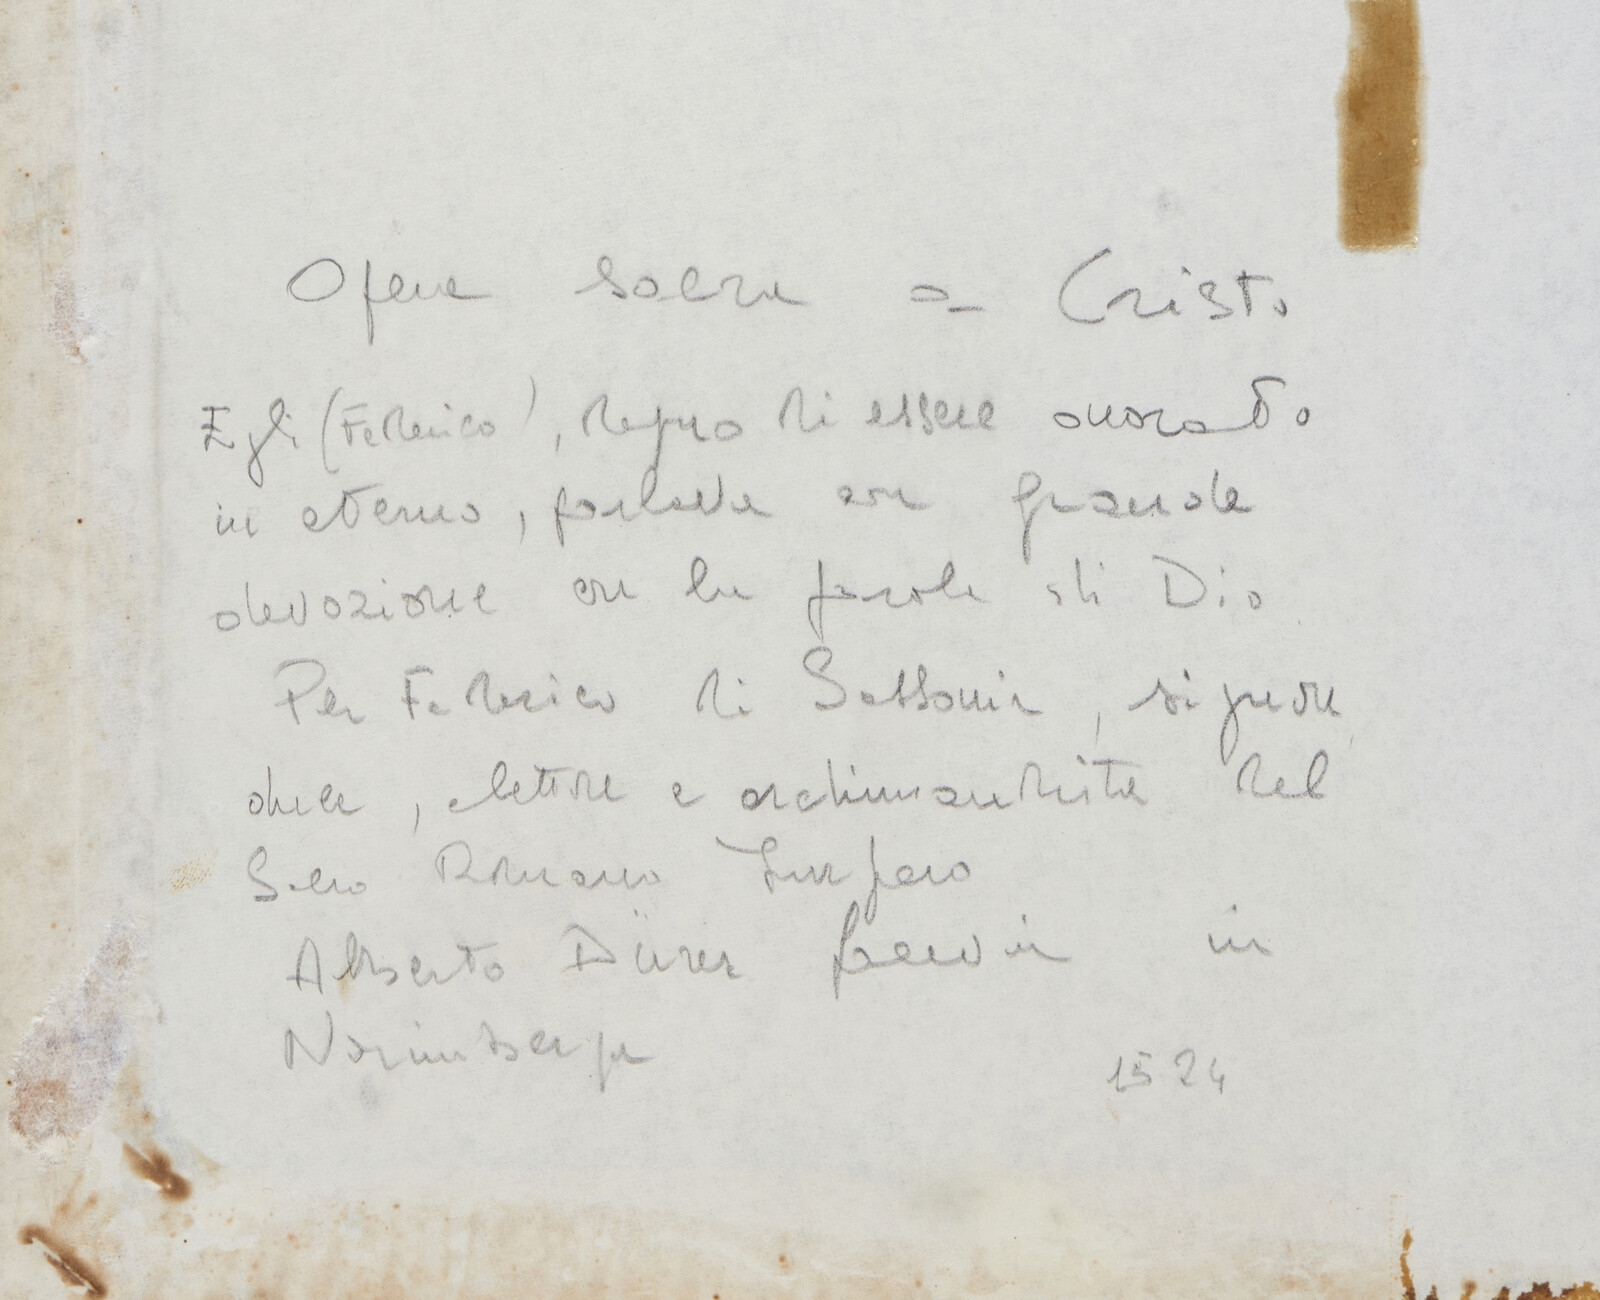 Opera sacra a Cristo
Egli (Federico), degno di essere onorato
in eterno, parlava con grande
devozione con la parola di Dio.
Per Federico di Sassonia, signore,
duca, elettore e archimandrita del
Sacro Romano Impero
Alberto Dürer faceva in
Norimberga 1524